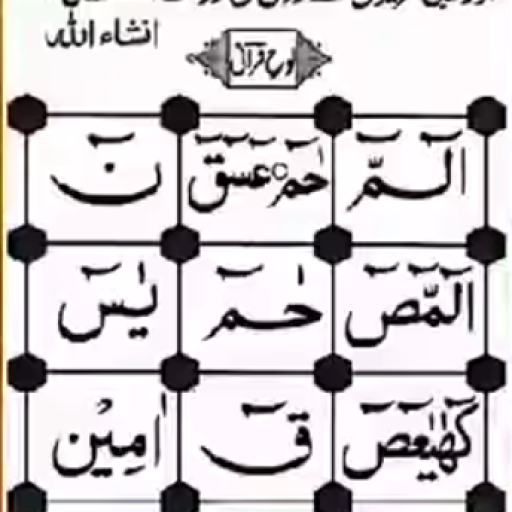 انشاء اللہ
لوح قرآنی
الٓمّٓ حٰمٓ عٓسٓقٓ نٓ
الٓمّٓصٓ حٰمٓ یٰسٓ
کٓھٰیٰعٓصٓ قٓ اٰمِیْن